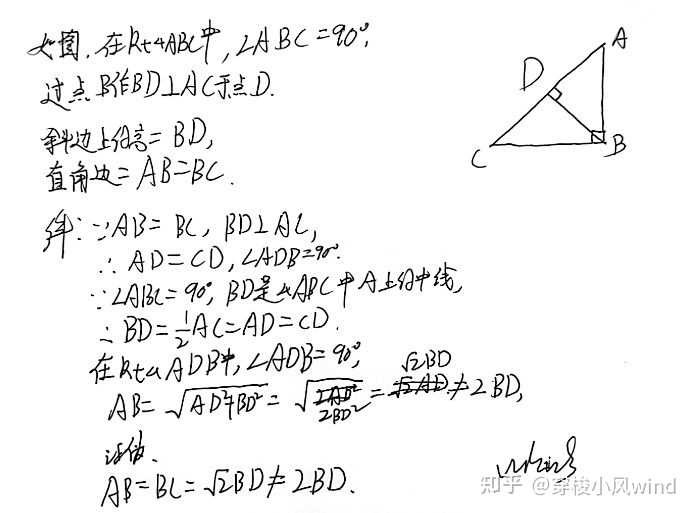 如图,在Rt△ABC中,∠ABC=90°,
过点B作BD⊥AC于点D.
斜边上的高=BD,
直角边=AB=BC.
解:∵AB=BC,BD⊥AC,
∴AD=CD,∠ADB=90°.
∵∠ABC=90°,BD是△ABC中A上的中线,
∴BD=1/2AC=AD=CD.
在Rt△ADB中,∠ADB=90°,
AB=√(AD²+BD²)=√(2BD²)=√2BD≠2BD,
AB=BC=√2BD≠2BD.
A
D
C
B
知乎 @穿梭小风wind